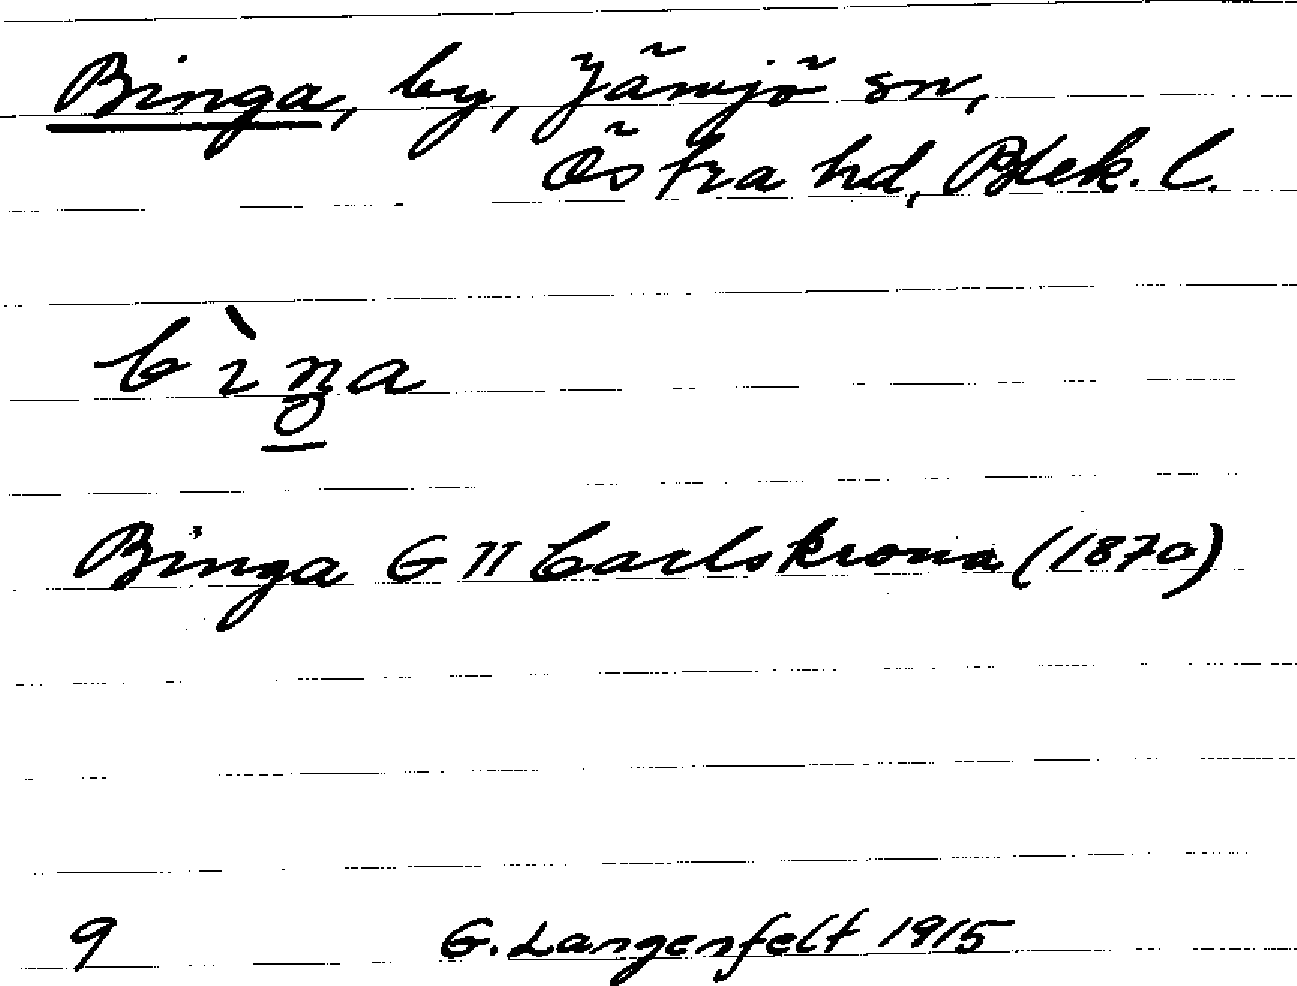 Binga, by, Jämjö sn,
Östra hd, Blek. l.
bìŋa
Binga G II Carlskrona (1870)
9 G. Langenfelt 1915